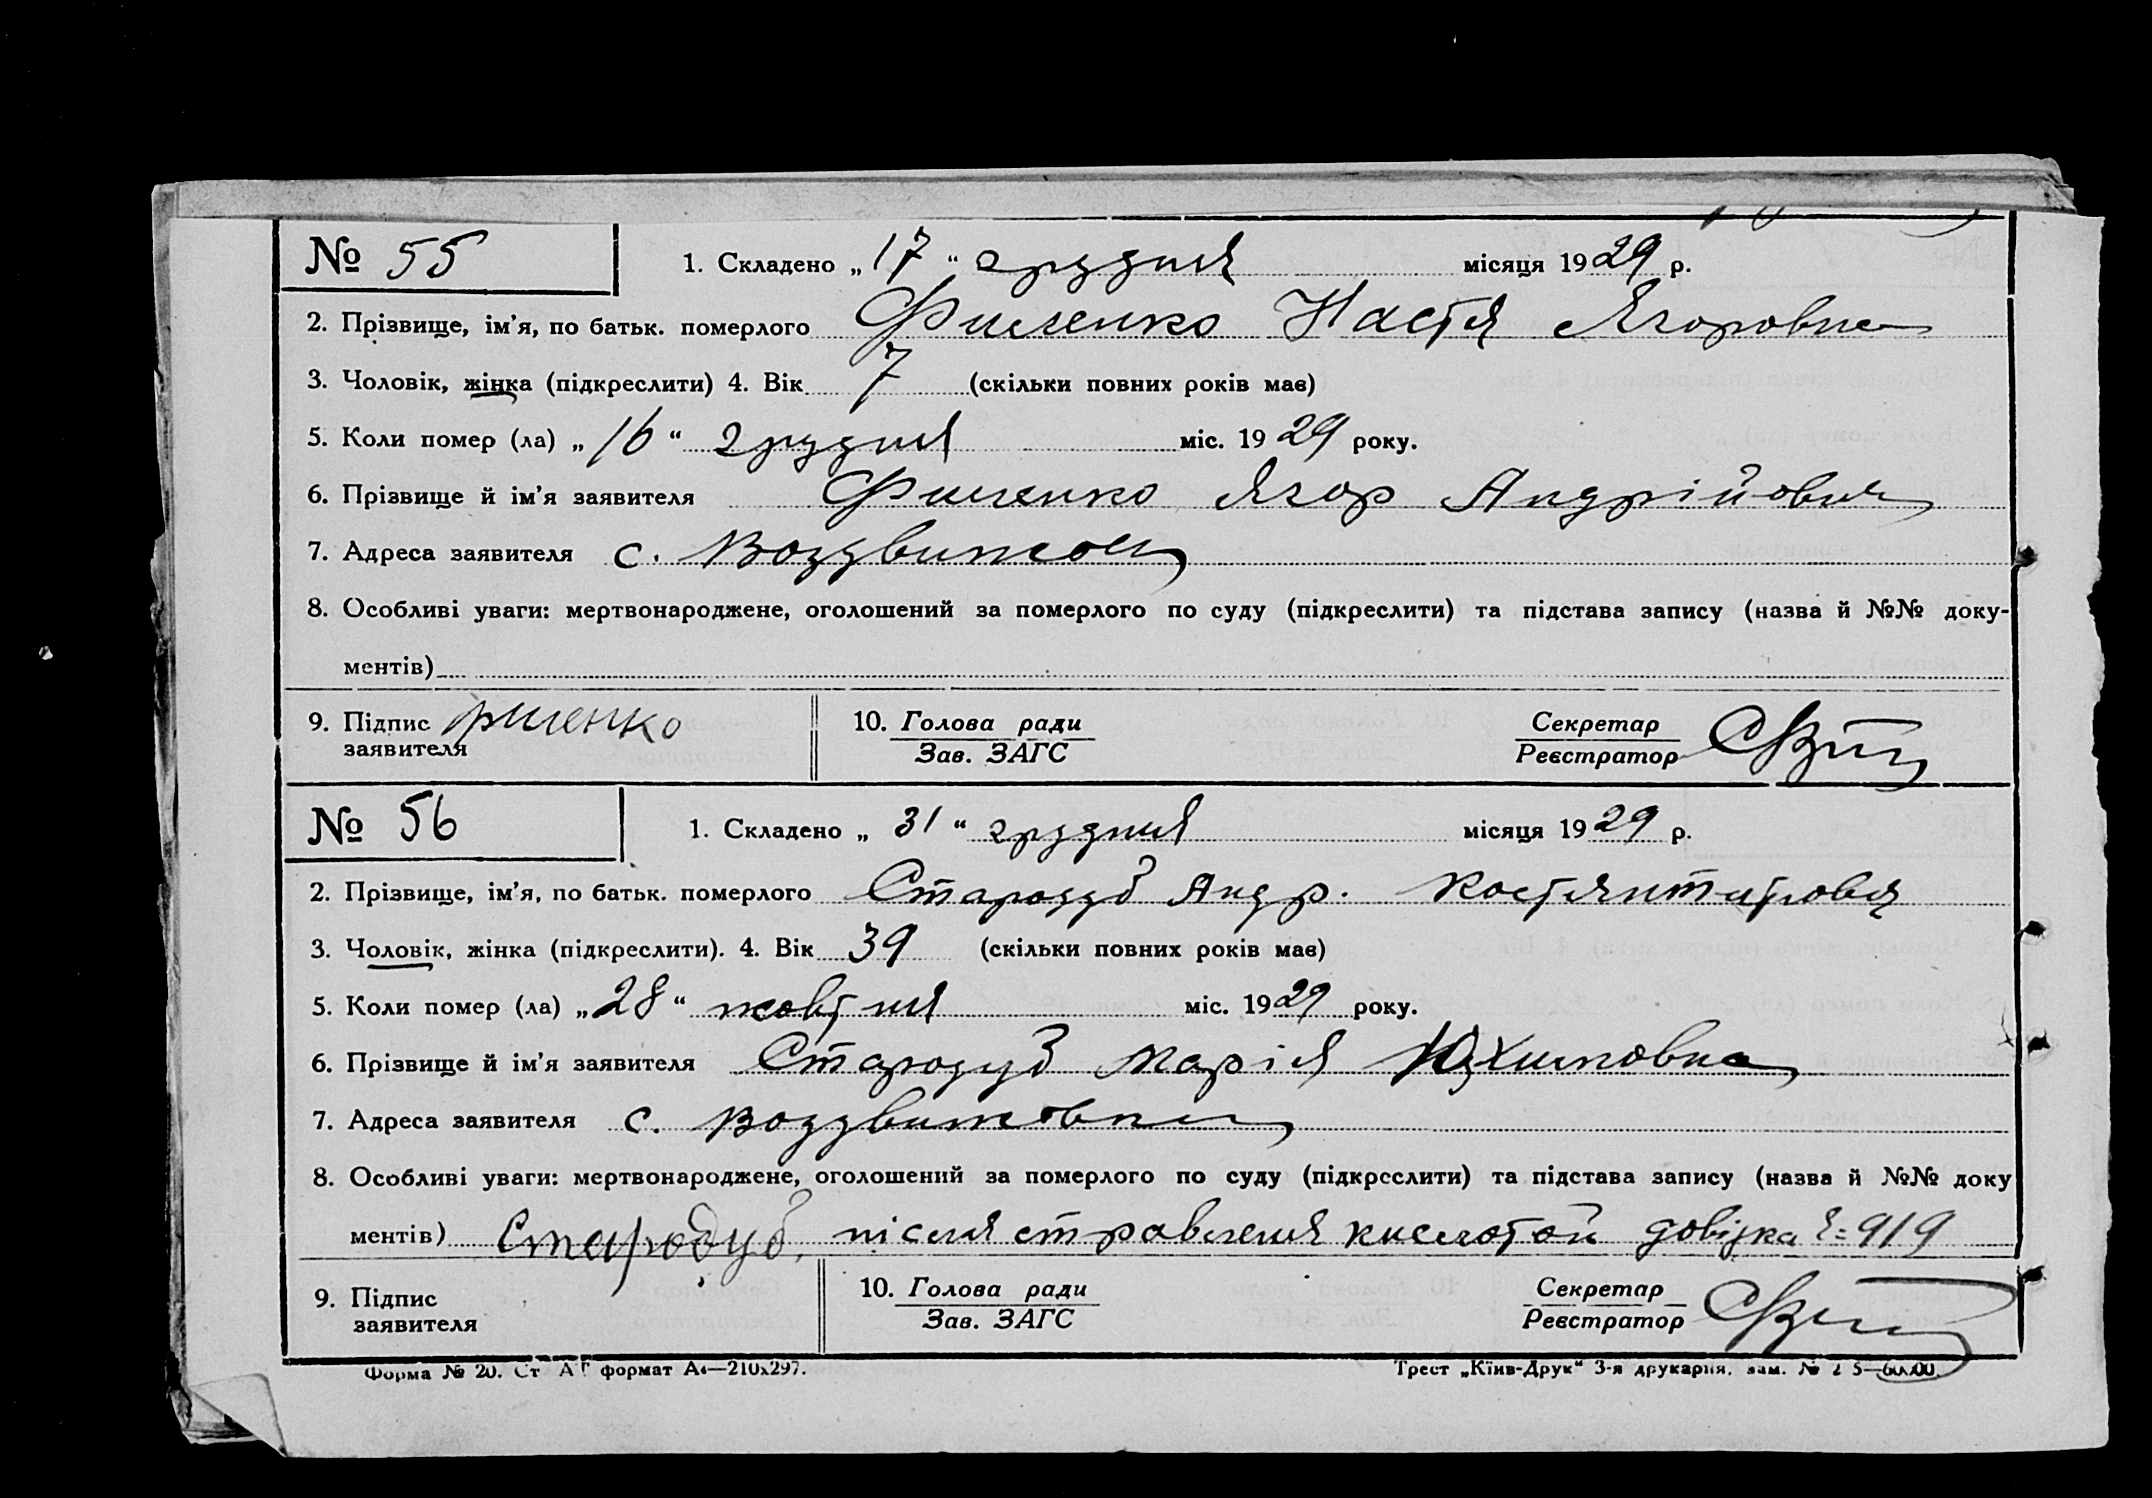 № 55 1. Складено „17“ грудня місяця 1929 р.
2. Прізвище, ім'я, по батьк. померлого Фименко Настя Ягоровна
3. Чоловік, жінка (підкреслити) 4. Вік 7 (скільки повних років має)
5. Коли помер (ла) „16“ грудня міс. 1929 року.
6. Прізвище й ім'я заявителя Фименко Ягор Андрійович
7. Адреса заявителя с.
8. Особливі уваги: мертвонароджене, оголошений за померлого по суду (підкреслити) та підстава запису (назва й №№ доку-
ментів)
9. Підпис заявителя 10. Голова ради Секретар
Зав. ЗАГС Реєстратор
№ 56 1. Складено „31“ грудня місяця 1929 р.
2. Прізвище, ім'я, по батьк. померлого Стародуб Андр. Костянтинович
3. Чоловік, жінка (підкреслити). 4. Вік 39 (скільки повних років має)
5. Коли помер (ла) „28“ жовтня міс. 1929 року.
6. Прізвище й ім'я заявителя Стародуб Марія Юхимовна
7. Адреса заявителя с. Воздвижовка
8. Особливі уваги: мертвонароджене, оголошений за померлого по суду (підкреслити) та підстава запису (назва й №№ доку
ментів) Стародуб, після стравленя кислотой довідка 919
9. Підпис заявителя 10. Голова ради Секретар
Зав. ЗАГС Реєстратор
Форма № 20. Ст формат А4—210х297. Трест „Київ-Друк“ 3-я друкарня, зам. №